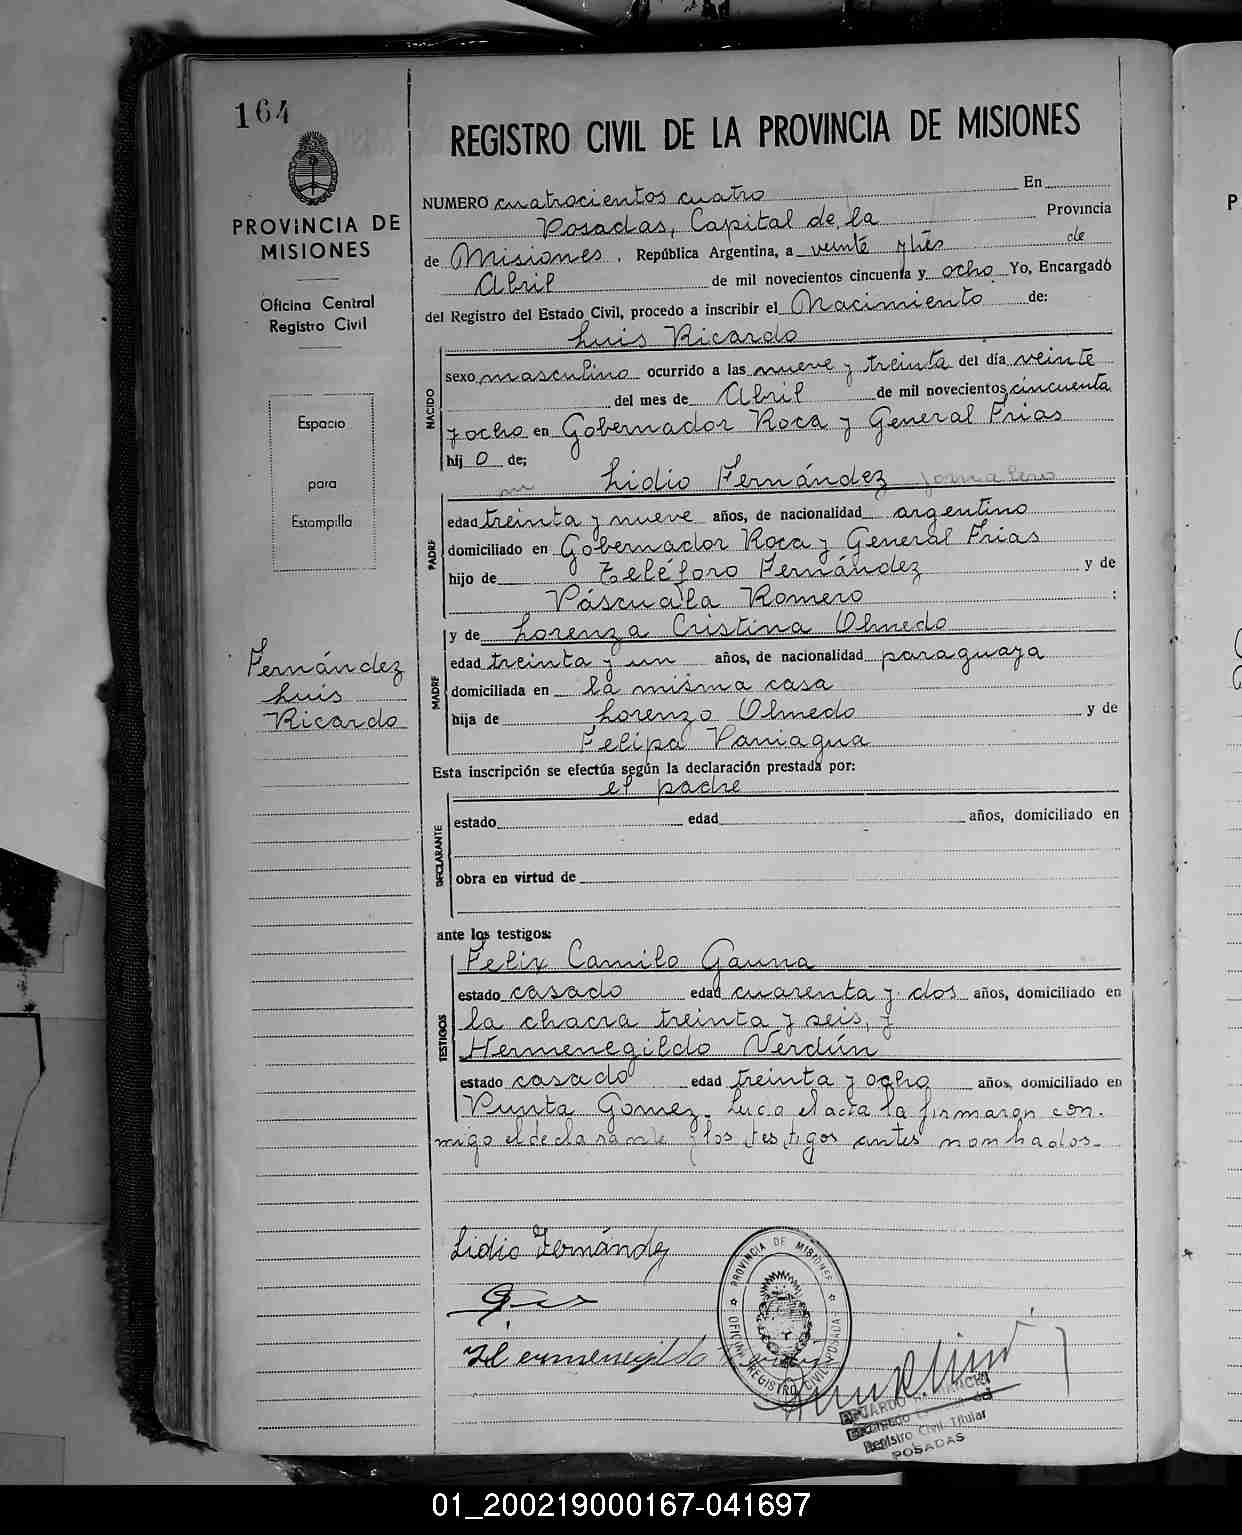 164
PROVINCIA DE
MISIONES
Oficina Central
Registro Civil
Espacio
para
Estampilla
Fernández
Luis
Ricardo
REGISTRO CIVIL DE LA PROVINCIA DE MISIONES
NUMERO cuatrocientos cuatro En
Posadas, Capital de la Provincia
de Misiones, República Argentina, a veinte y tres de
Abril de mil novecientos cincuenta y ocho Yo, Encargado
del Registro del Estado Civil, procedo a inscribir el Nacimiento de:
Luis Ricardo
NACIDO
sexo masculino ocurrido a las nueve y treinta del día veinte
del mes de Abril de mil novecientos cincuenta
y ocho en Gobernador Roca y General Frias
hij o de;
Lidio Fernández jornalero
PADRE
edad treinta y nueve años, de nacionalidad argentino
domiciliado en Gobernador Roca y General Frias
hijo de Teléforo Fernández y de
Páscuala Romero :
MADRE
y de Lorenza Cristina Olmedo
edad treinta y un años, de nacionalidad paraguaya
domiciliada en la misma casa
hija de Lorenzo Olmedo y de
Felipa Paniagua
Esta inscripción se efectúa según la declaración prestada por:
el padre
DECLARANTE
estado edad años, domiciliado en
obra en virtud de
ante los testigos:
TESTIGOS
Felix Camilo Gauna
estado casado edad cuarenta y dos años, domiciliado en
la chacra treinta y seis, y
Hermenegildo Verdún
estado casado edad treinta y ocho años, domiciliado en
Punta Gomez. Leida el acta la firmaron con-
migo el declarante y los testigos antes nombados.
Lidio Fernández
Hermenegildo
PROVINCIA DE MISIONES
OFICINA REGISTRO CIVIL POSADAS
EDUARDO
Registro Civil Titular
POSADAS
01_200219000167-041697